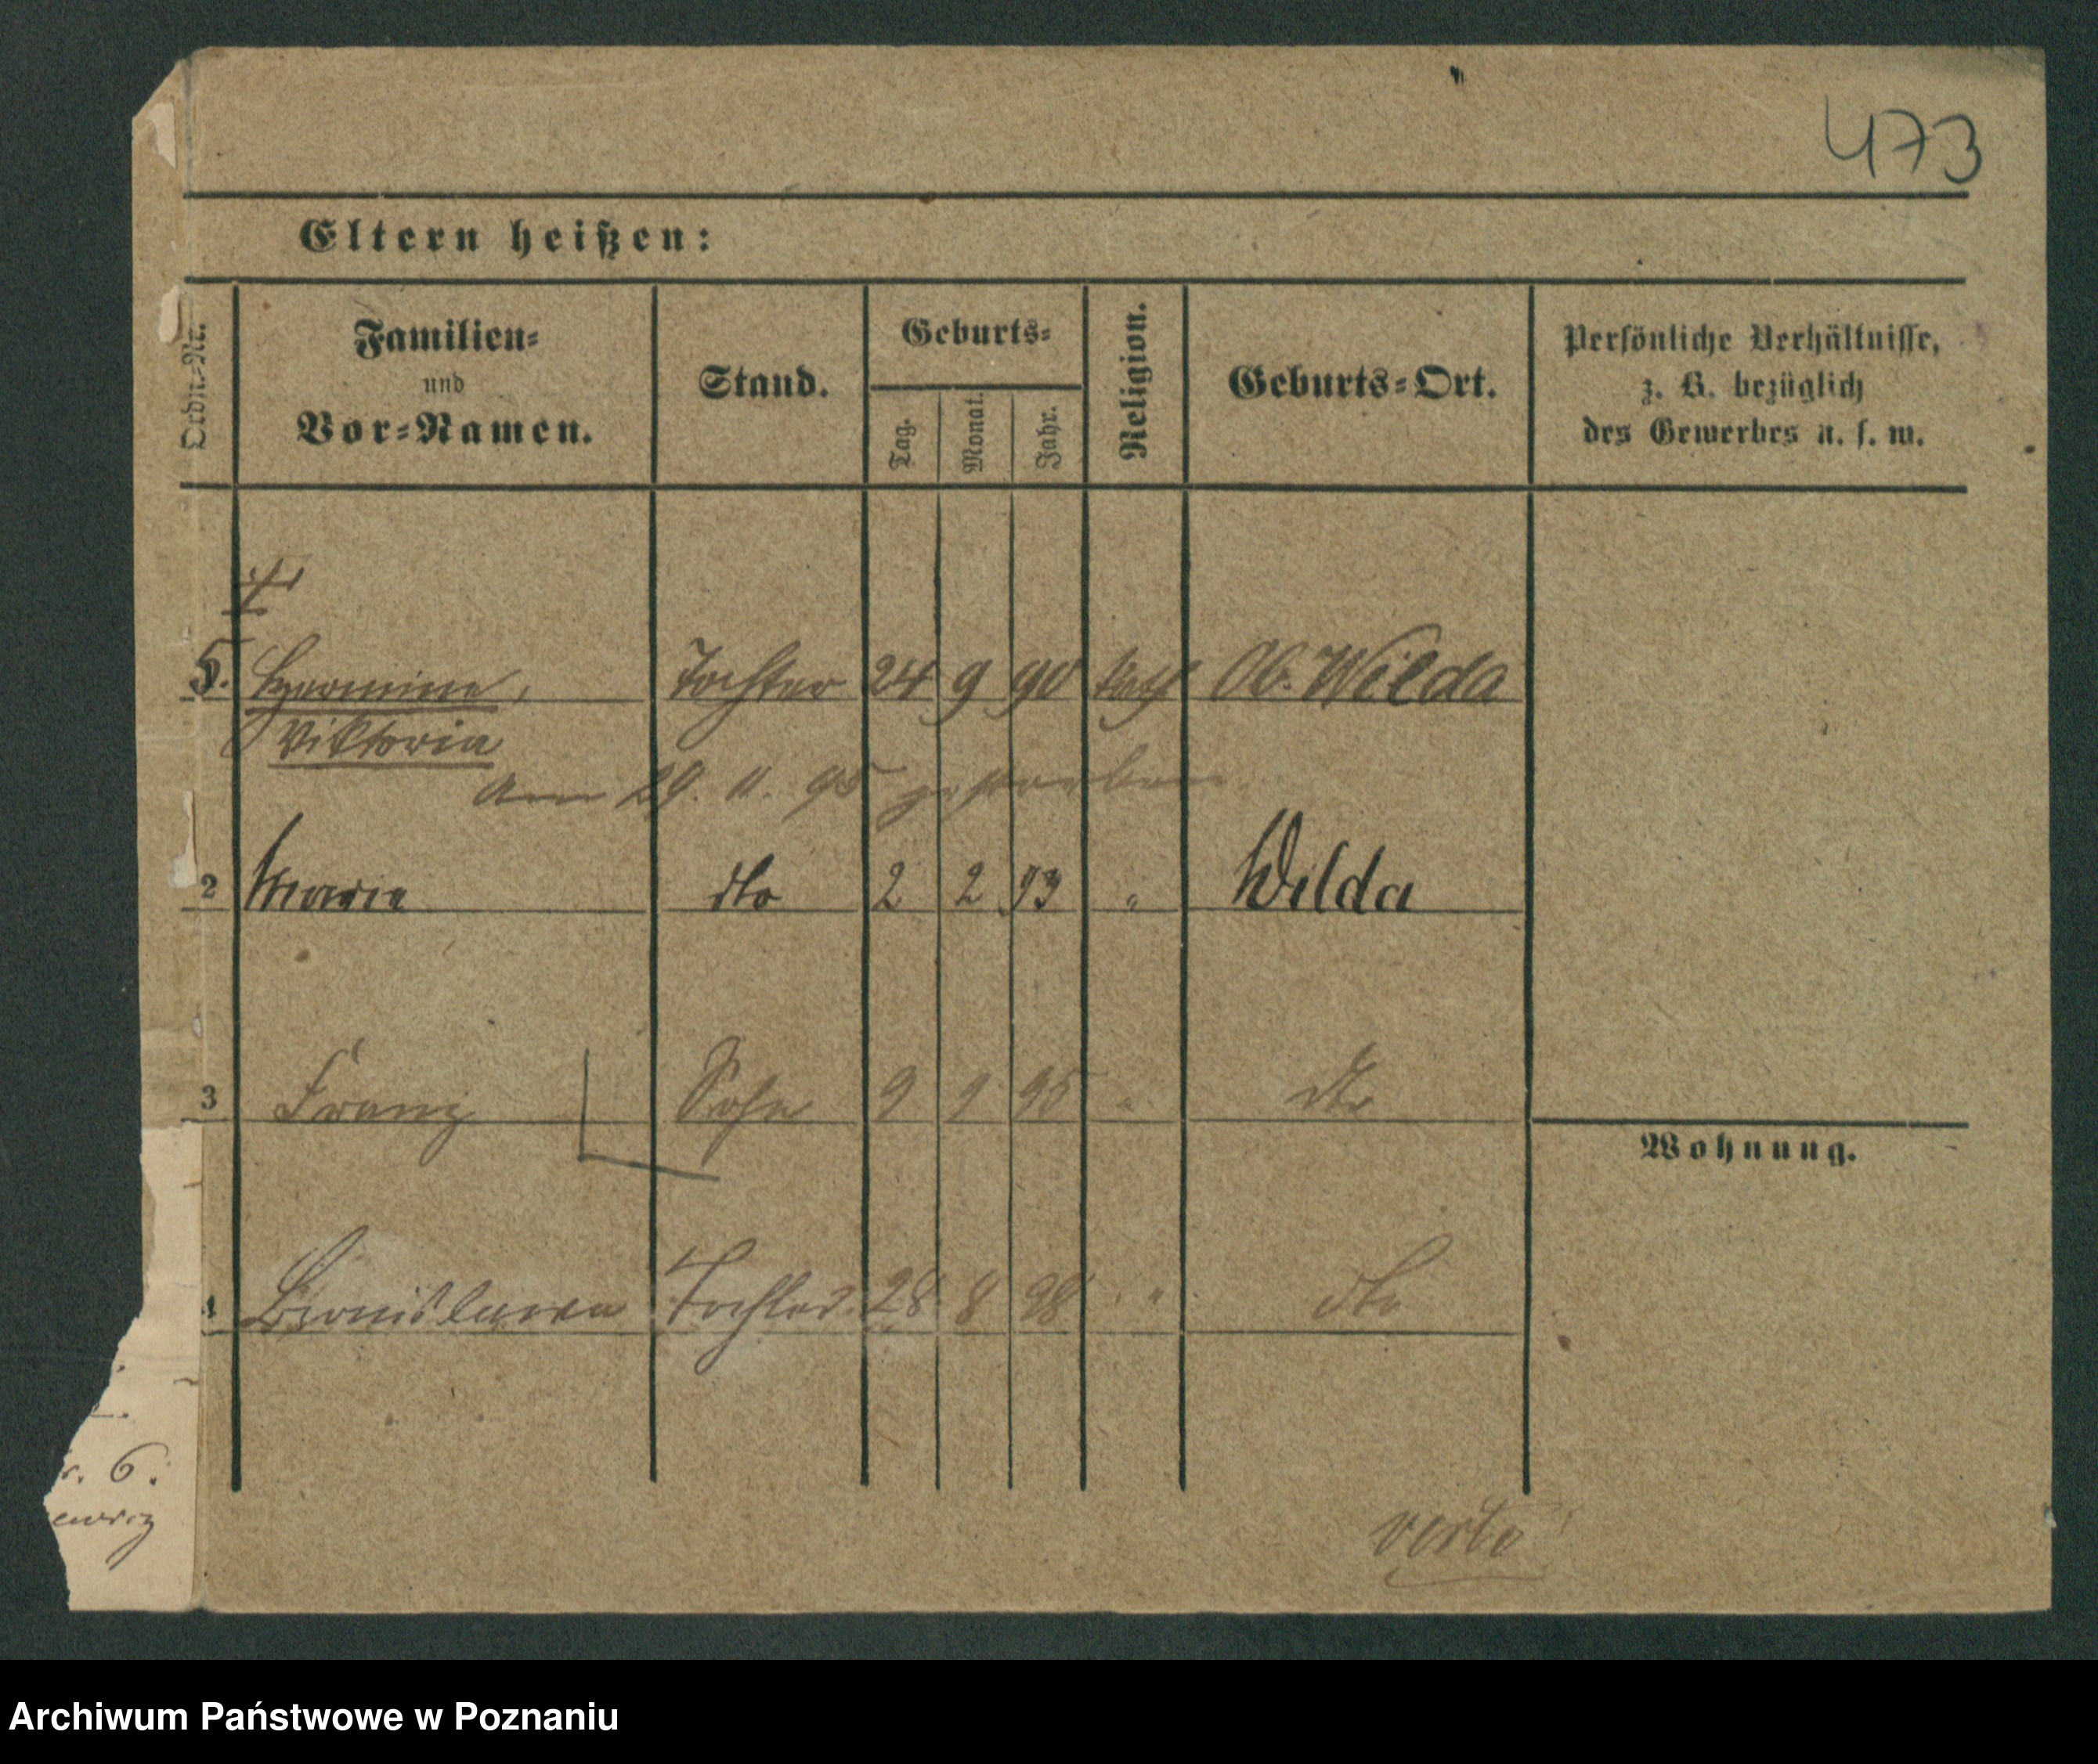 473
Eltern heißen:
Ordn.-Nr. Familien- und Vor-Namen. Stand. Geburts- Tag. Monat. Jahr. Religion. Geburts-Ort. Persönliche Verhältnisse, z. B. bezüglich des Gewerbes u. s. w.
5. Hermine, Tochter 24 9 90 kath Ob. Wilda
Viktoria
am 29. 11. 95 gestorben
2 Maria dto 2 2 93 " Wilda
3 Franz Sohn 9 9 95 " dto
Wohnung.
4 Bronislawa Tochter 28 8 98 " dto
r. 6.
ewicz
verte
Archiwum Państwowe w Poznaniu